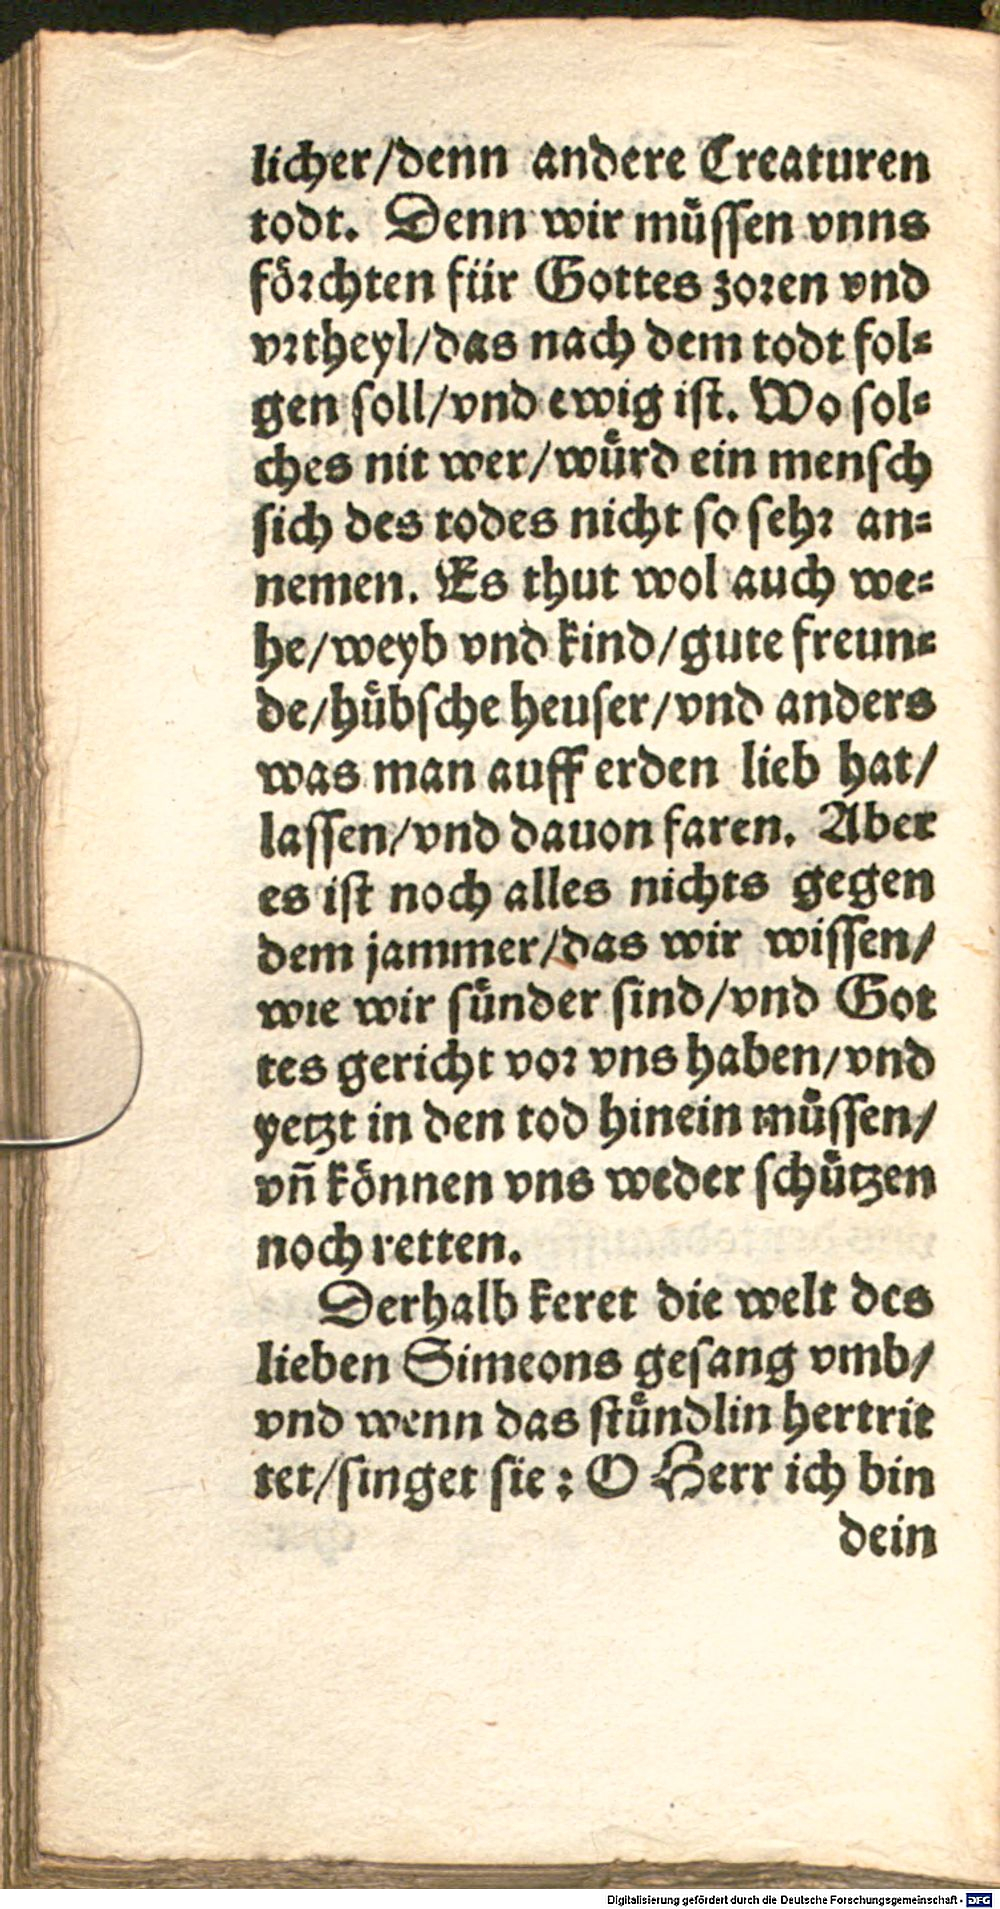 licher/denn andere Creaturen
todt. Denn wir müſſen vnns
föꝛchten für Gottes zoꝛen vnd
vꝛtheyl/das nach dem todt fol⸗
gen ſoll/vnd ewig iſt. Wo ſol⸗
ches nit wer/wuͤrd ein menſch
ſich des todes nicht ſo ſehꝛ an⸗
nemen. Es thut wol auch we⸗
he/weyb vnd kind/gute freun⸗
de/huͤbſche heuſer/vnd anders
was man auff erden lieb hat/
laſſen/vnd dauon faren. Aber
es iſt noch alles nichts gegen
dem jammer/das wir wiſſen/
wie wir ſuͤnder ſind/vnd Got
tes gericht voꝛ vns haben/vnd
yetzt in den tod hinein muͤſſen/
vn̄ koͤnnen vns weder ſchuͤtzen
noch retten.
Derhalb keret die welt des
lieben Simeons geſang vmb/
vnd wenn das ſtuͤndlin hertrit
tet/ſinget ſie: O Herr ich bin
dein
Digitalisierung gefördert durch die Deutsche Forschungsgemeinschaft - DFG